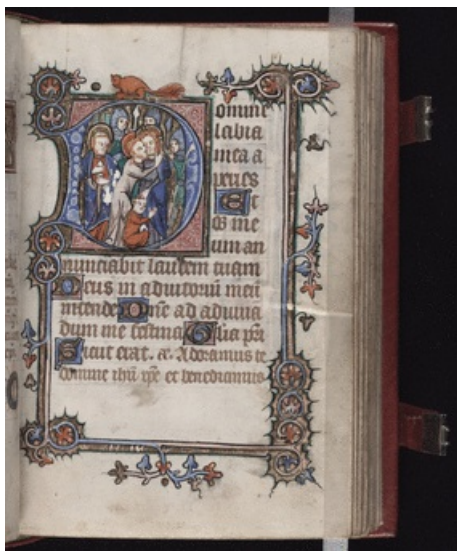 Domine
labia
mea a
peries
Et
os me
um an
nunciabit laudem tuam
Deus in adiutoriu meu
intende One ad adiuua
dum me festina Glia pri
Sicut erat. æ. Adoramus te
domine ihu xpe et benedicimus